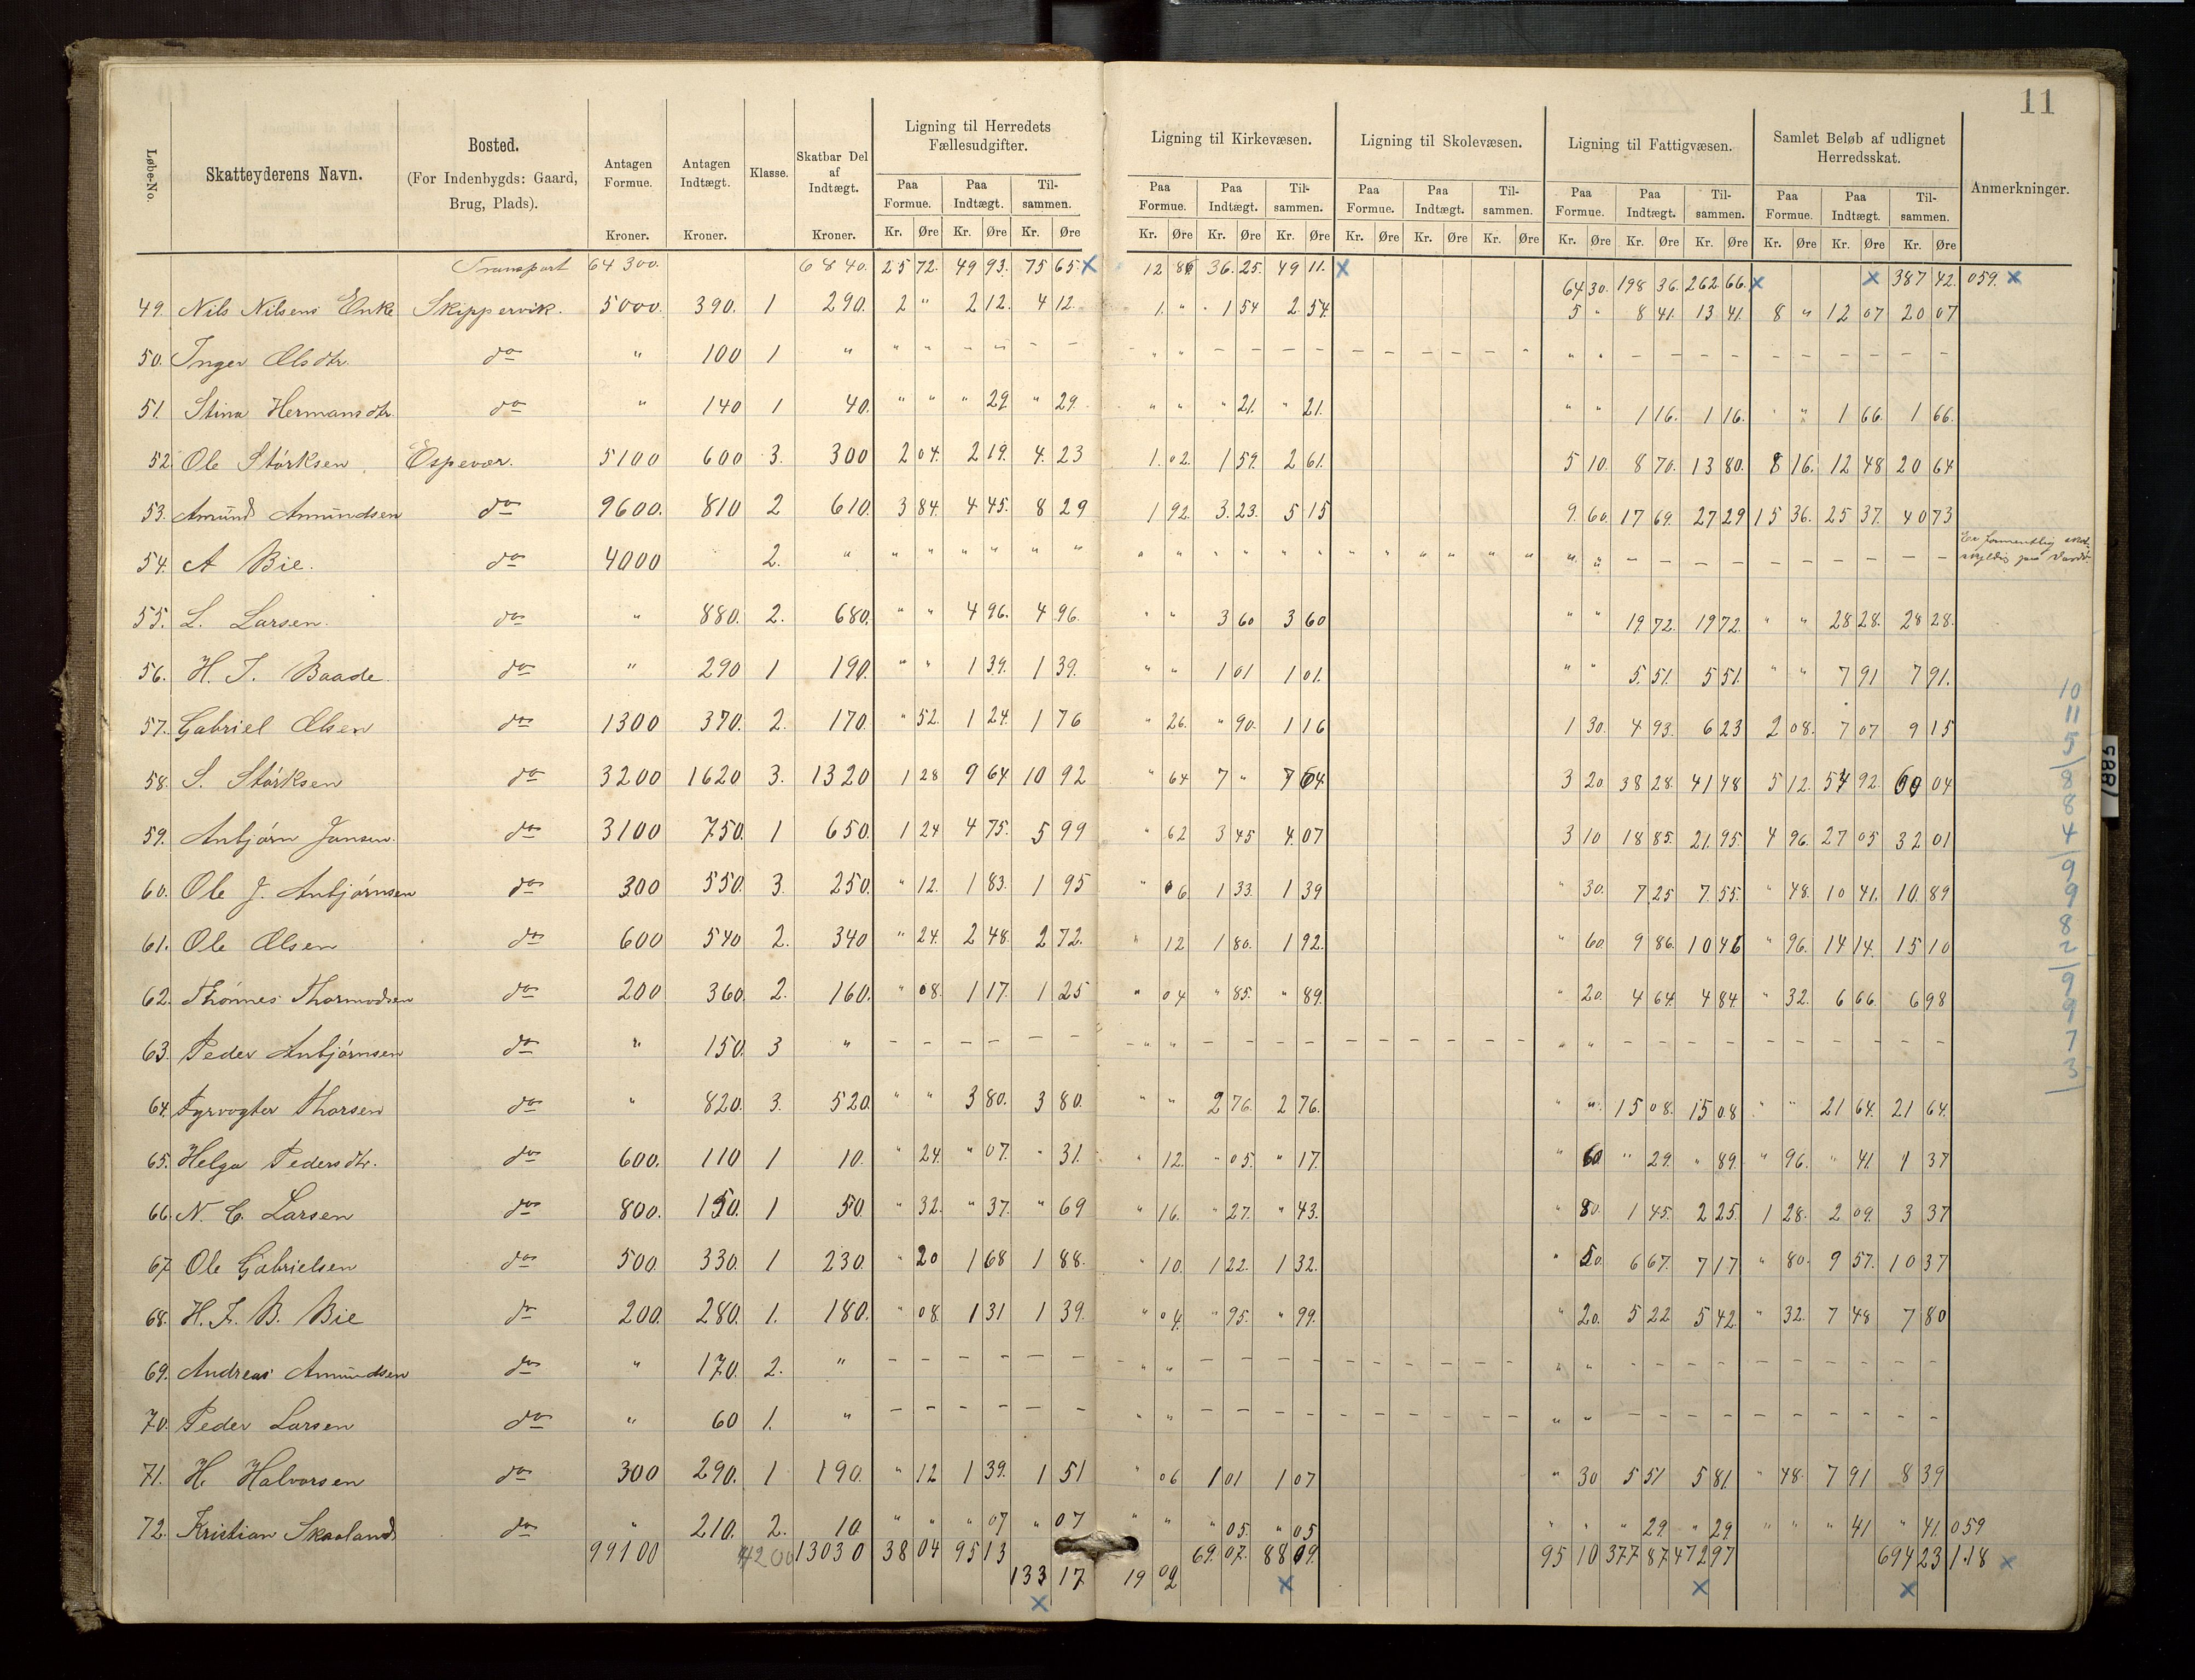 11
Løbe-No. Skatteyderens Navn. Bosted. (For Indenbygds: Gaard, Brug, Plads). Antagen Formue. Kroner. Antagen Indtægt. Kroner. Klasse. Skatbar Del af Indtægt. Kroner. Ligning til Herredets Fællesudgifter. Ligning til Kirkevæsen. Ligning til Skolevæsen. Ligning til Fattigvæsen. Samlet Beløb af udlignet Herredsskat. Anmerkninger.
Paa Formue. Paa Indtægt. Til-sammen. Paa Formue. Paa Indtægt. Til-sammen. Paa Formue. Paa Indtægt. Til-sammen. Paa Formue. Paa Indtægt. Til-sammen. Paa Formue. Paa Indtægt. Til-sammen.
Kr. Øre Kr. Øre Kr. Øre Kr. Øre Kr. Øre Kr. Øre Kr. Øre Kr. Øre Kr. Øre Kr. Øre Kr. Øre Kr. Øre Kr. Øre Kr. Øre Kr. Øre
Transport 64300. 6840. 25 72. 49 93. 75 65. x 12 86 36. 25. 49 11. x 64 30. 198 36. 262 66. x x 387 42. 059. x
49. Nils Nilsens Enke Skippervik. 5000. 390. 1 290. 2 " 2 12. 4 12. 1. " 1 54 2. 54. 5 " 8 41. 13 41. 8 " 12 07 20 07
50. Inger Olsdtr. do " 100 1 " " " - " - - - " " - - - - - - - - - - " " - - - - - - - - - -
51. Stina Hermansdtr. do " 140 1 40. " " " 29 " 29. " " " 21. " 21. " " 1 16. 1 16. " " 1 66. 1 66.
52. Ole Størksen Espevær. 5100 600 3. 300 2 04. 2 19. 4. 23 1. 02. 1 59. 2 61. 5 10. 8 70. 13 80. 8 16. 12 48 20 64
53. Amund Amundsen do 9600. 810 2 610. 3 84. 4 45. 8 29 1 92. 3. 23. 5 15 9. 60. 17 69. 27 29 15 36. 25 37. 40 73
54. A Bie. do 4000 2. " " " " " " " " " " " " " " " " " " " " " - - - - - - - - - - Er formentlig
55. L. Larsen. do " 880. 2. 680. " " 4 96. 4 96. " " 3 60 3 60 " " 19. 72. 19 72. " " 28 28. 28 28.
56. H. J. Baade. do " 290 1 190. " " 1 39. 1 39. " " 1 01 1 01. " " 5. 51. 5 51. " " 7 91 7 91.
57. Gabriel Olsen do 1300 370. 2. 170. " 52. 1 24. 1 76 " 26. " 90. 1 16 1 30. 4 93. 6 23 2 08. 7 07 9 15
58. S. Størksen do 3200 1620 3. 1320 1 28 9 64 10 92 " 64 7 " 7 64 3 20. 38 28. 41 48 5 12. 54 92. 60 04
59. Anbjørn Jansen. do 3100 750. 1 650. 1 24 4 75. 5 99 " 62 3 45 4. 07 3 10 18 85. 21. 95. 4 96. 27 05 32 01
60. Ole J. Anbjørnsen do 300 550. 3. 250. " 12. 1 83. 1 95 " 06 1 33 1 39 " 30. 7 25 7. 55. " 48. 10 41. 10. 89
61. Ole Olsen do 600 540 2. 340 " 24. 2 48. 2 72. " 12 1 80. 1 92. " 60. 9 86. 10 46 " 96. 14 14. 15 10
62. Thønnes Thormodsen do 200 360. 2. 160. " 08. 1 17. 1 25 " 04 " 85. " 89. " 20. 4 64. 4 84. " 32. 6 66 6 98
63. Peder Anbjørnsen do " 150. 3 " - - - - - - - " " - - - - - - - - - - " " - - - - - - - - - -
64. Fyrvogter Thorsen do " 820. 3. 520. " " 3 80. 3 80. " " 2 76. 2 76. " " 15 08. 15 08 " " 21 64. 21 64.
65. Helga Pedersdtr. do 600. 110 1 10. " 24. " 07. " 31. " 12. " 05. " 17. " 60 " 29. " 89. " 96. " 41. 1 37
66. N. C. Larsen do 800. 150. 1 50. " 32. " 37. " 69 " 16. " 27. " 43. " 80. 1 45. 2 25. 1 28. 2 09. 3 37
67. Ole Gabrielsen do 500. 330. 1 230. " 20 1 68 1 88. " 10. 1 22. 1 32. " 50. 6 67. 7 17 " 80. 9 57. 10 37
68. H. F. B. Bie do 200. 280. 1. 180. " 08. 1 31 1 39. " 04. " 95. " 99. " 20. 5 22 5 42. " 32. 7 48 7 80
69. Andreas Amundsen do " 170. 2. " - - - - - - - " " - - - - - - - - - - " " - - - - - - - - - -
70. Peder Larsen do " 60 1. " - - - - - - " " - - - - - - - - - - " " - - - - - - - - - -
71. H. Halvorsen do 300 290. 1 190. " 12 1 39. 1 51 " 06 1 01 1 07 " 30 5 51 5 81. " 48. 7 91 8 39
72. Kristian Skaaland do " 210. 2. 10 " " " 07 " 07 " " " 05. " 05 " " " 29. " 29. " " " 41 " 41. 059
99100 4200 13030 38 04 95 13 69. 07. 88 09. 95 10 377 87 472 97 694 23 1.18 x
133 17 19 02 x x x
x
10
11
5
8
8
4
9
9
8
2
9
9
7
3
1885